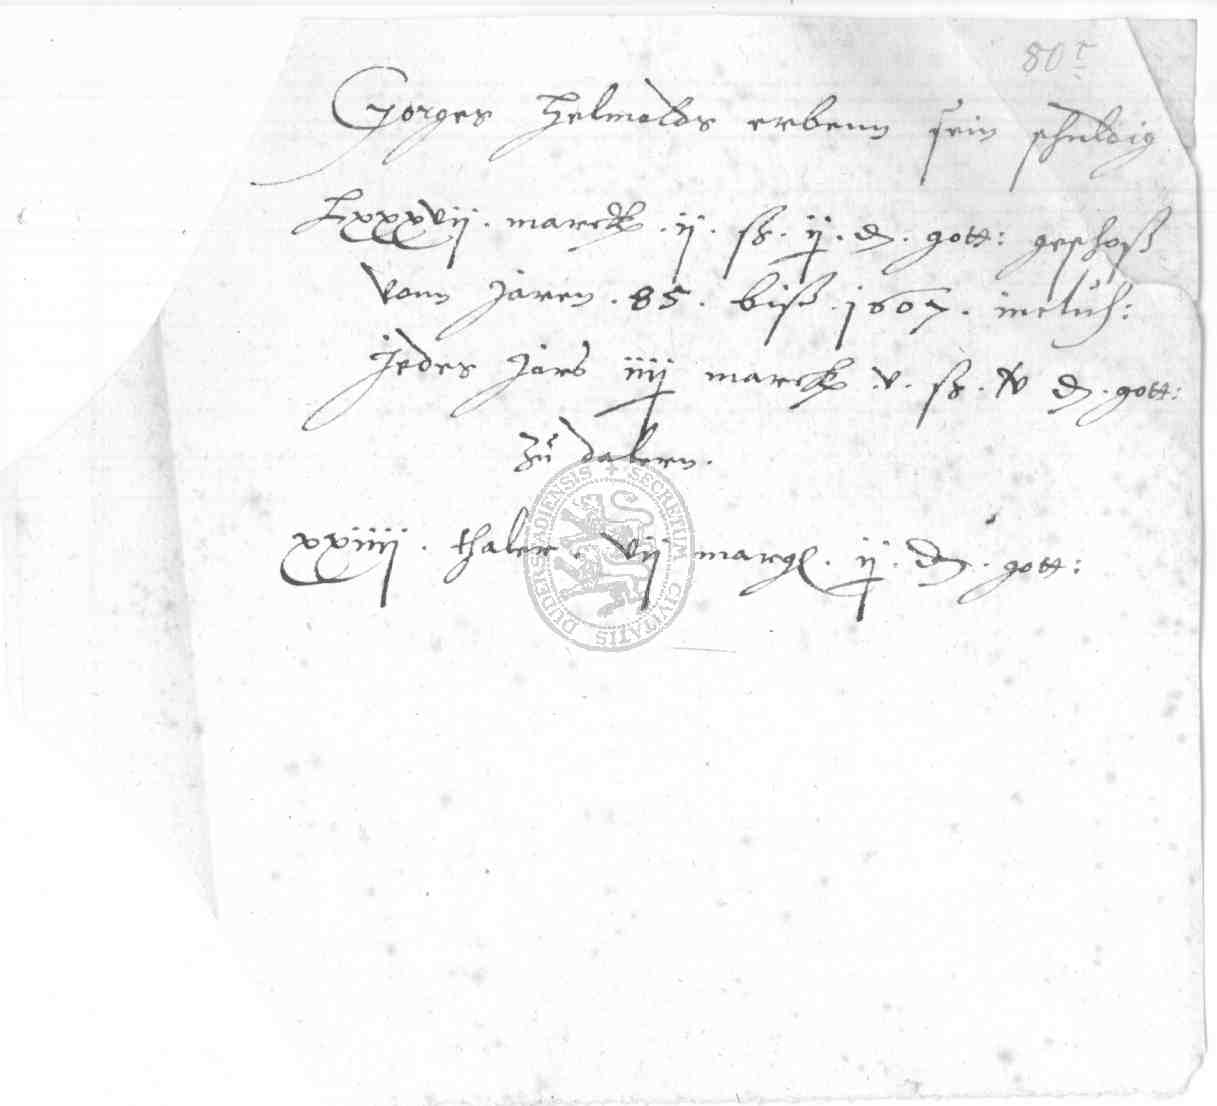 80r
Gorges Helmolds erbenn sein schuldig
Lxxxvij . marck . ij . ß . ij . d . gott: geschoß
vonn jaren . 85 . biß . 1607 . inclus:
jedes jars iiij marck .v. ß . iv d . gott:
zů dalern .
xxiiij . thaler . vij marg . ij . d . gott:
SECRETUM CIVITATIS DUDERSTADIENSIS